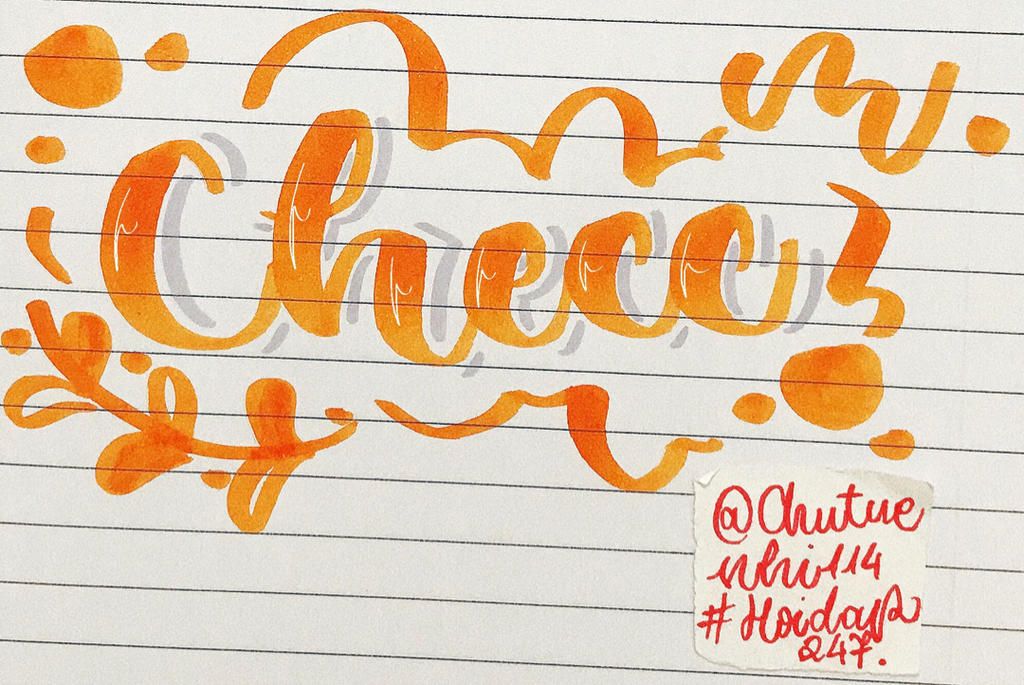 Checc
@Chutue
nhi114
#Hoidap
247.